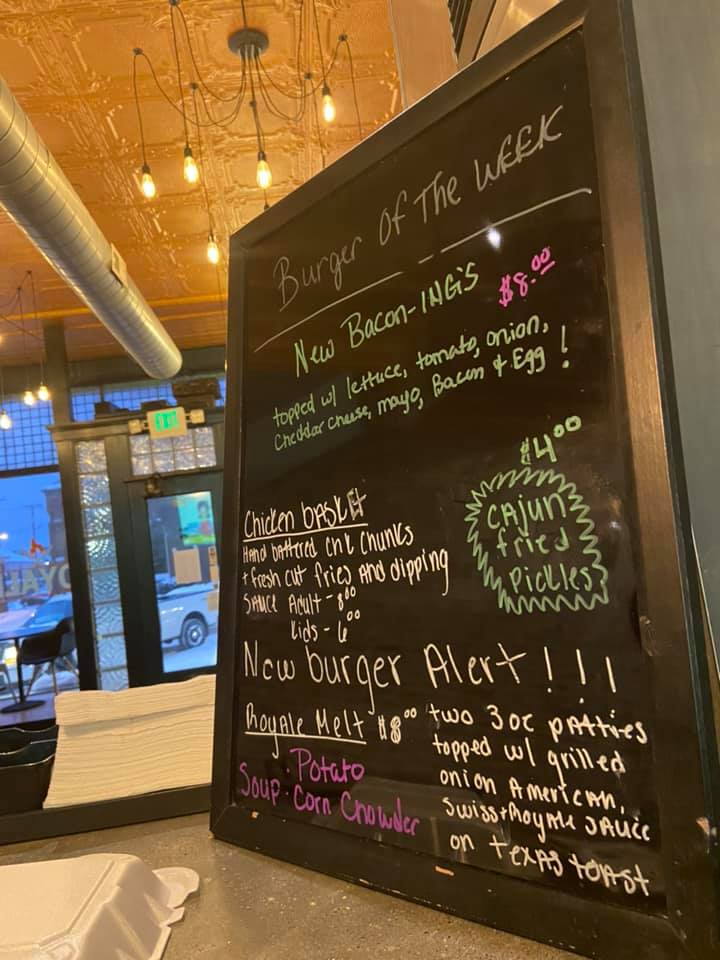 Burger Of The WEEK
New Bacon-INGiS $8.00
topped w/ lettuce, tomato, onion,
Cheddar cheese, mayo, Bacon & Egg!
$4.00
CAjun
fried
Pickles
Chicken bASkEt
Hand battered chk Chunks
+ fresh cut fries And dipping
SAuce Adult - 8.00
Kids - 6.00
New burger Alert!!!
Royale Melt $8.00 two 3oz pAtties
topped w/ grilled
onion AmericAn,
Swiss + RoyAle SAuce
on texAs toAst
Potato
Soup · Corn Chowder
EXIT